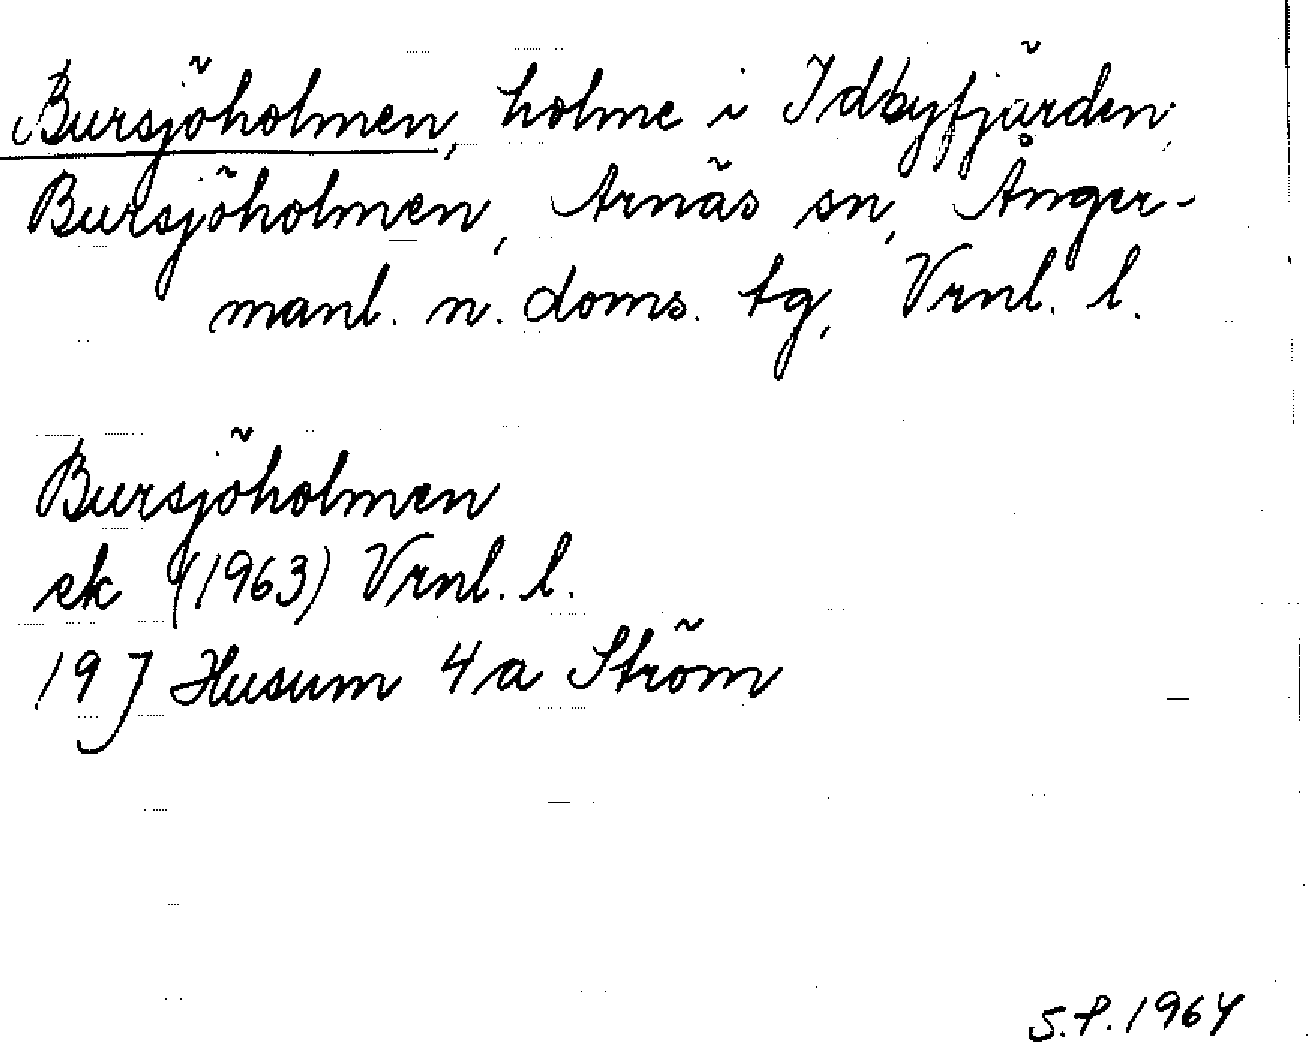 Bursjöholmen, holme i Idbyfjärden,
Bursjöholmen, Arnäs sn, Ånger-
manl. n. doms. tg, Vrnl. l.
Bursjöholmen
ek (1963) Vrnl. l.
19 J Husum 4a Ström
S.P. 1964